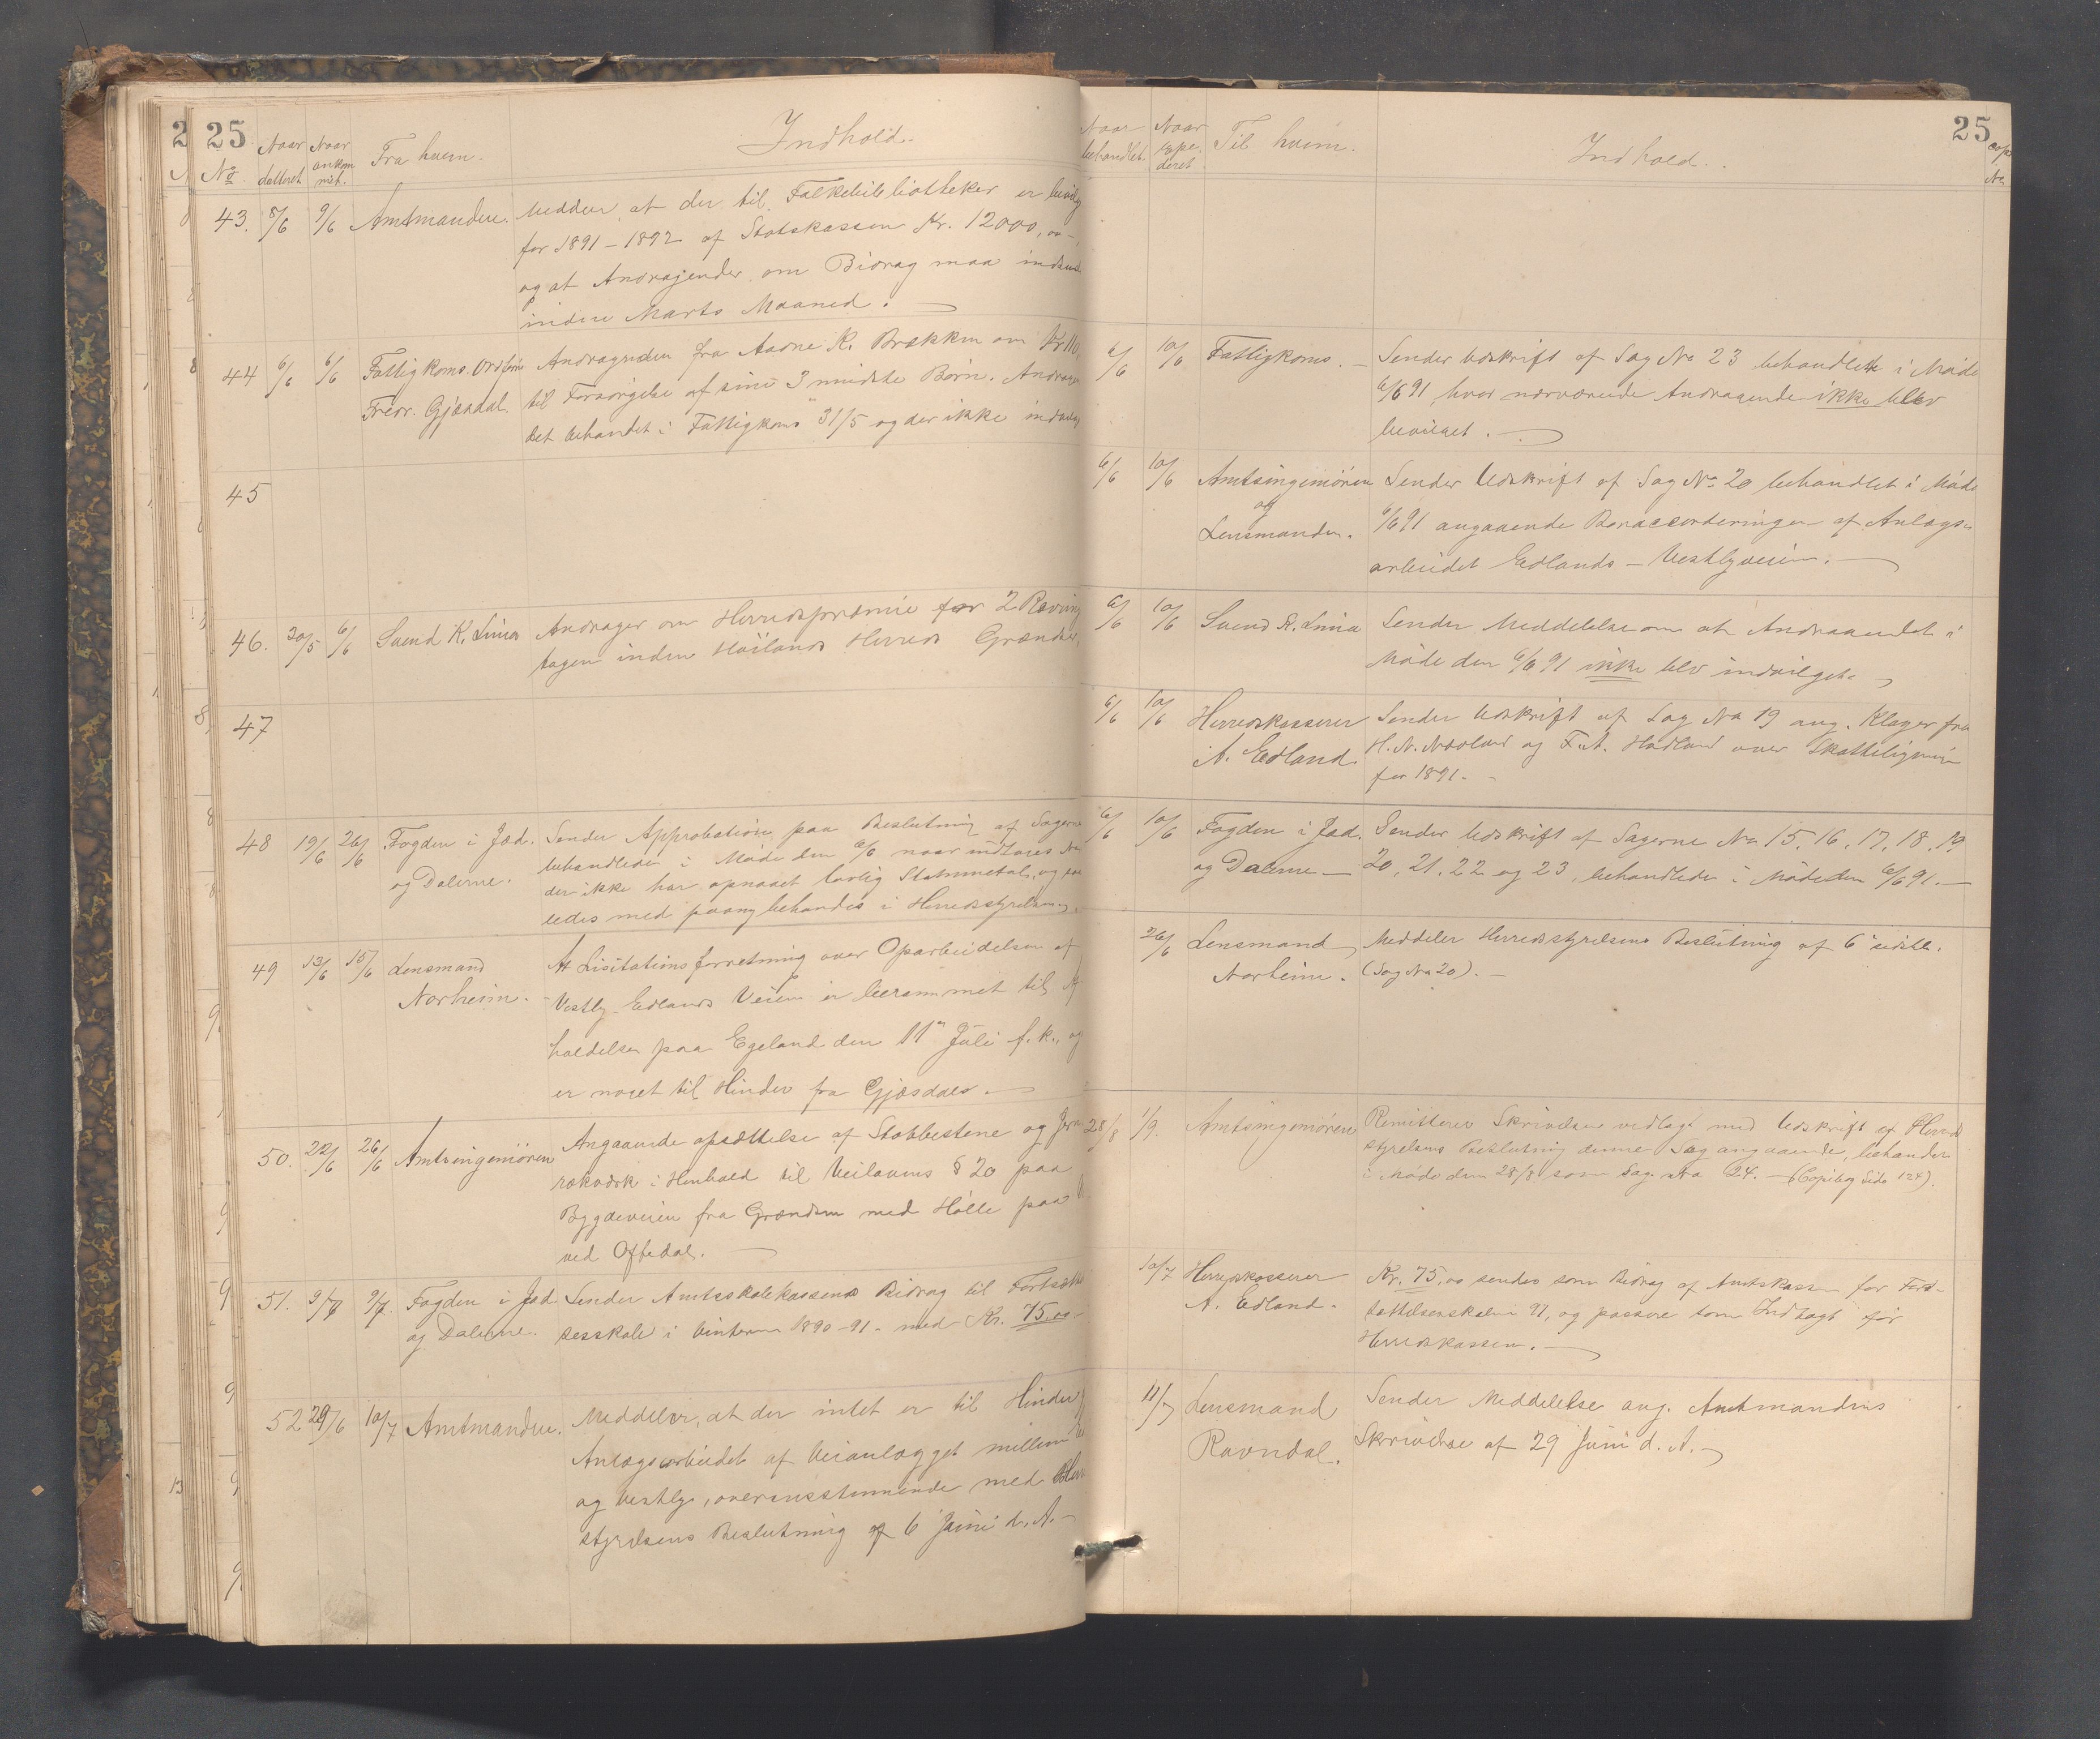 25
No Naar datteret Naar ankommet. Fra hvem. Indhold.
43. 8/6 9/6 Amtmanden. Meddeler, at der til Folkebibliotheker er bevilg
for 1891-1892 af Statskassen Kr. 12000,
og at Andragender om Bidrag maa indsend
inden Marts Maaned.
44 6/6 6/6 Fattigkoms. Ordfører Andragenden fra Aadne K. Brækken om Kr. 110,
Fredr. Gjesdal. til Forsörgelse af sine 3 mindste Börn. Andragen
det behandlet i Fattigkoms 31/5 og der ikke
45
46. 30/5 6/6 Svend K. Lima Andrager om Herredspræmie for 2 Ræveunge
tagen inden Höilands Herreds Grændser.
47
48 19/6 26/6 Fogden i Jæd. Sender Approbation paa Beslutning af Sagerne
og Dalerne. behandlede i Möde den 6/6 naar undtages No
der ikke har opnaaet lovlig Stemmetal, og
ledes med paany behandles i Herredsstyrelsen.
49 13/6 15/6 Lensmand At Lisitationsforretning over Oparbeidelsen af
Norheim. Vestly Edlands Veien er berammet til Af
holdelse paa Egeland den 11" Juli f. k., og
er noget til Hinder fra Gjæsdal.
50. 22/6 26/6 Amtsingeniören Angaaende opsættelse af Stabbestene og Jern
rækværk i Henhold til Veilovens § 20 paa
Bygdeveien fra Grændsen med Hölle paa
ved Oftedal.
51. 9/7 9/7. Fogden i Jæd Sender Amtsskolekassens Bidrag til Fortsættel
og Dalerne. sesskole i Vinteren 1890-91. med Kr. 75,00
52 29/6 10/7 Amtmanden. Meddeler, at der intet er til Hinder
Anlægsarbeidet af Veianlægget mellem
og Vestly, overensstemmende med Herr
styrelsens Beslutning af 6 Juni d. A.
25
Naar behandlet. Naar expederet. Til hvem. Indhold. Cop No
6/6 10/6 Fattigkoms. Sender Udskrift af Sag No 23 behandlet i Möde
6/6 91 hvor nærværende Andragende ikke blev
bevilget.
6/6 10/6 Amtsingeniören Sender Udskrift af Sag No 20 behandlet i Möde
og 6/6 91 angaaende Bortaccorderingen af Anlægs-
Lensmanden. arbeidet Edlands - Vestlyveien.
6/6 10/6 Svend K. Lima Sender Meddelelse om at Andragendet i
Möde den 6/6 91 ikke blev indvilget.
6/6 10/6 Herredskasserer Sender Udskrift af Sag No 19 ang. Klager fra
A. Edland. H. N. Nævland og F. A. Hadland over Skatteligningen
for 1891.
6/6 10/6 Fogden i Jæd. Sender Udskrift af Sagerne No 15, 16, 17, 18, 19
og Dalerne 20, 21, 22 og 23, behandlede i Möde den 6/6 91.
26/6 Lensmand Meddeler Herredsstyrelsens Beslutning af 6" sidstl.
Norheim. (Sag No 20).
28/8 1/9. Amtsingeniören Remitterer Skrivelsen vedlagt med Udskrift af Herreds
styrelsens Beslutning denne Sag angaaende, behandlet
i Möde den 28/8 som Sag No 24. - (Copibog Side 124).
10/7 Herredskasserer Kr. 75,00 sendes som Bidrag af Amtskassen for Fort-
A. Edland. sættelsesskolen 91, og passere som Indtægt for
Herredskassen.
11/7 Lensmand Sender Meddelelse ang. Amtmandens
Ravndal. Skrivelse af 29 Juni d. A.